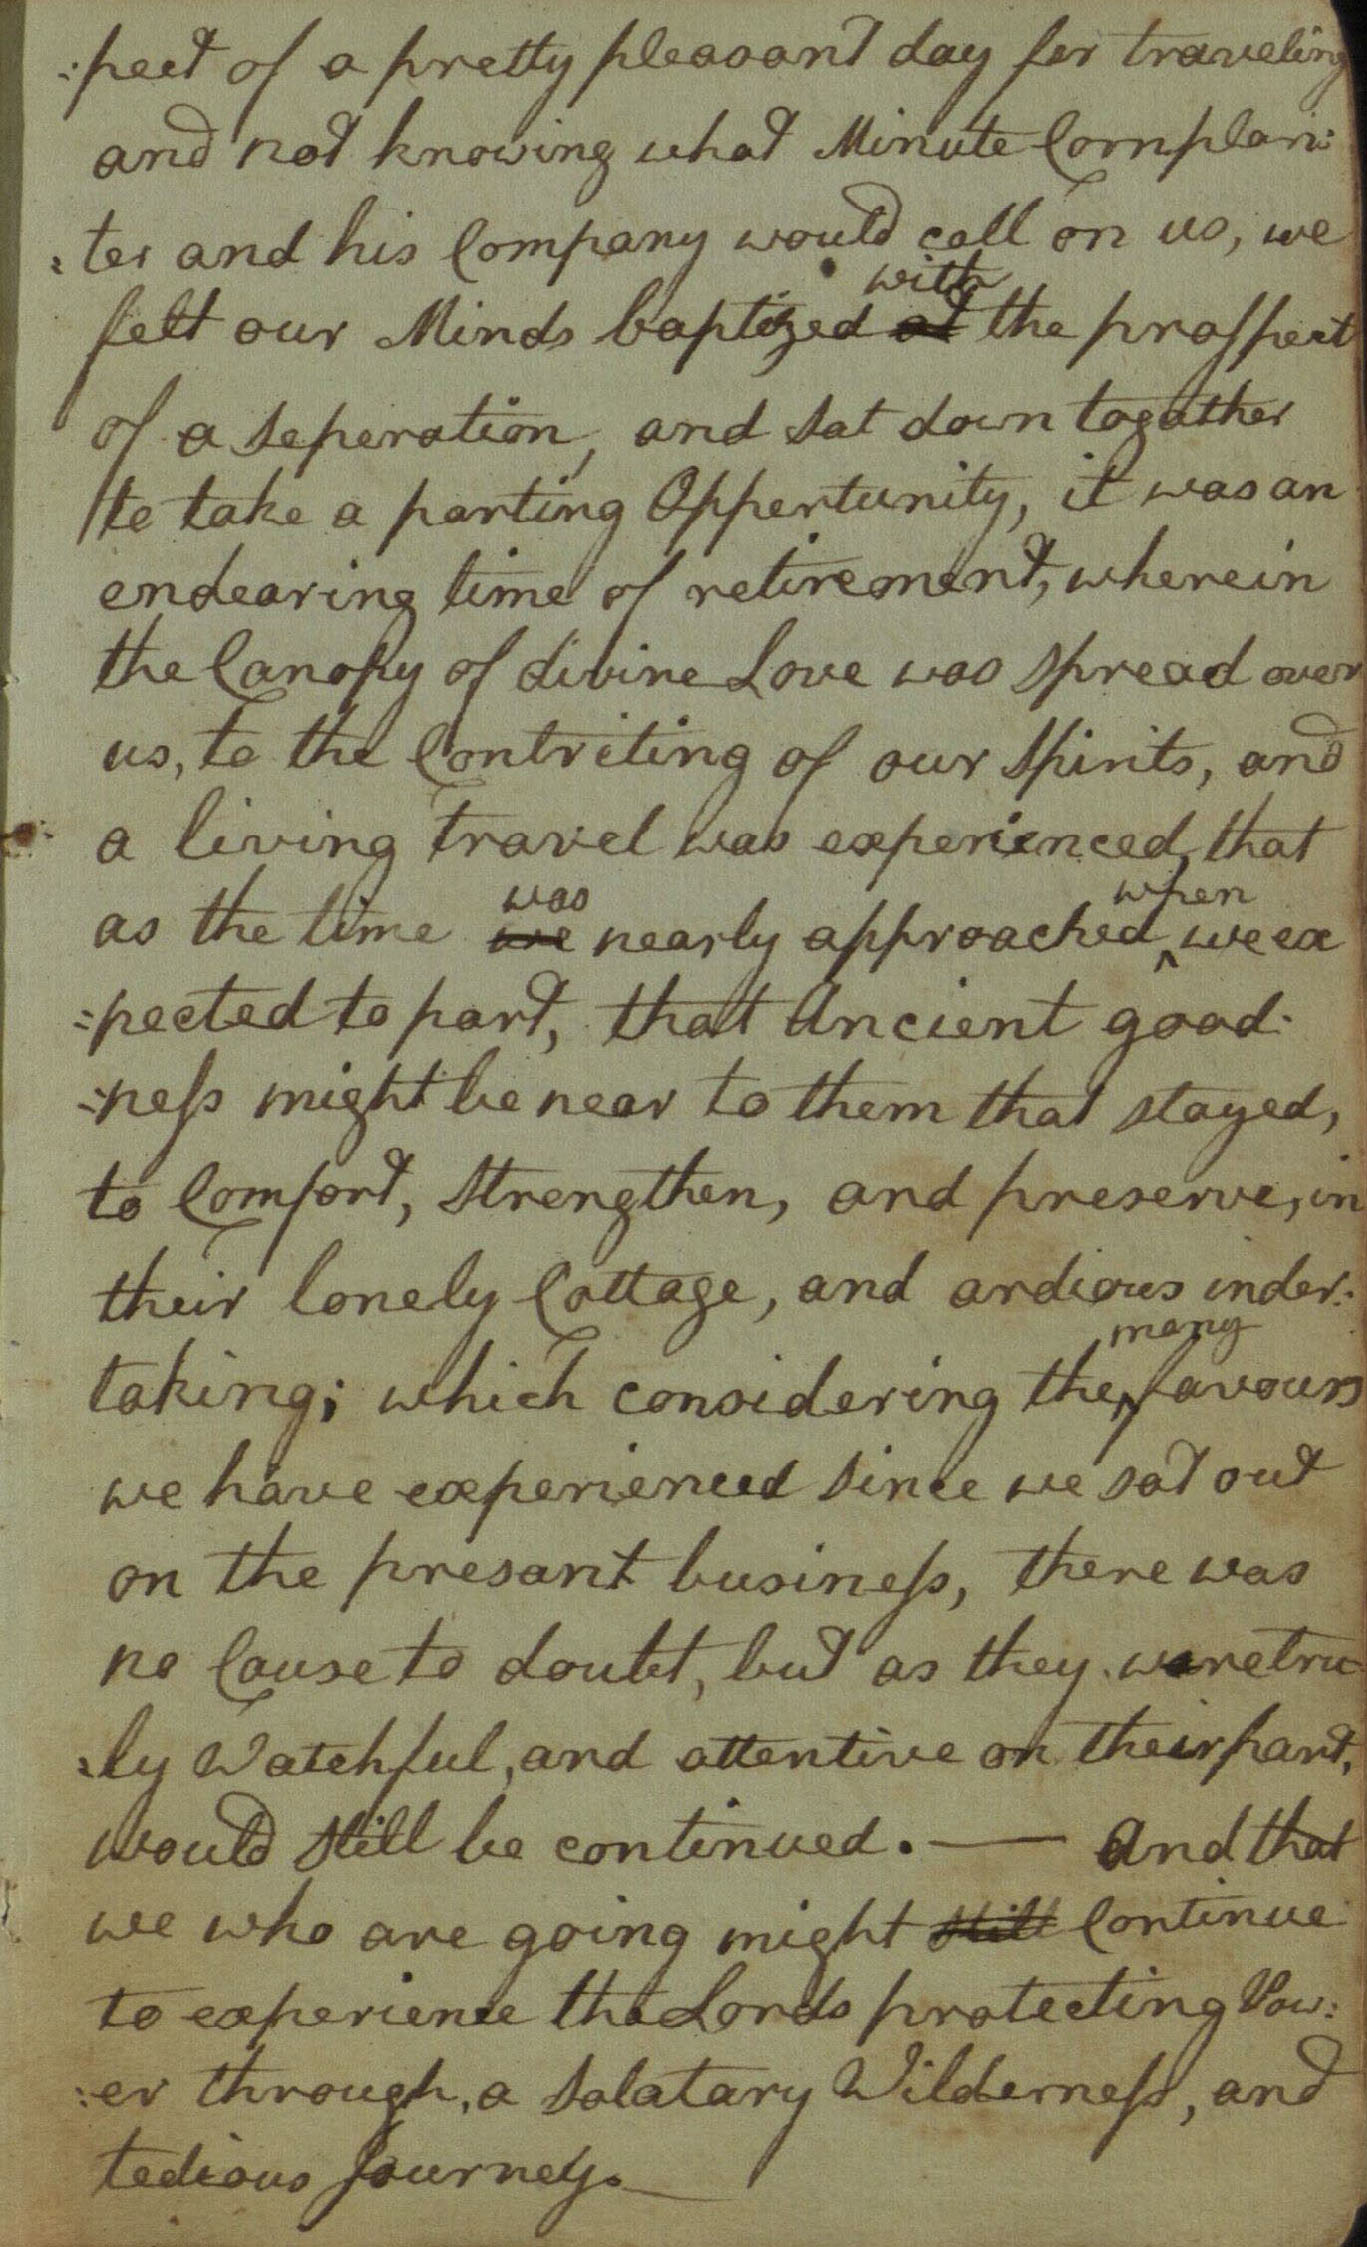 :pect of a pretty pleasant day for traveling
and not knowing what Minute Cornplan:
:ter and his Company would call on us, we
felt our Minds baptized at with the prospect
of a seperation, and sat down togather
to take a parting Oppertunity, it was an
endearing time of retirement, wherein
the Canopy of divine Love was spread over
us, to the Contriting of our Spirits, and
a living travel was experienced, that
as the time we was nearly approached, when we ex
:pected to part, that Ancient good:
:ness might be near to them that stayed,
to Comfort, Strengthen, and preserve, in
their lonely Cottage, and ardious under:
taking; which considering the many favours
we have experienced since we sat out
on the presant business, there was
no Cause to doubt, but as they were tru
:ly Watchful, and attentive on their part,
would still be continued. — And that
we who are going might still Continue
to experience the Lords protecting Pow:
:er through, a Solatary Wilderness, and
tedious Journey.